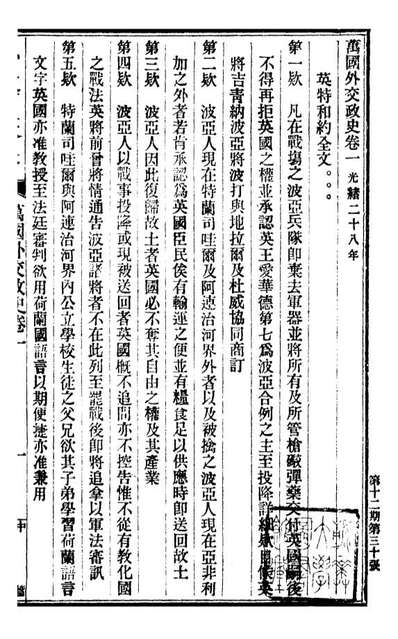 萬國外交政史卷一 光緒二十八年
英特和約全文。。。
第一欵 凡在戰塲之波亞兵隊卽棄去軍器並將所有及所管槍礮彈藥交付英國嗣後
不得再拒英國之權並承認英王愛華德第七爲波亞合例之主至投降詳細欵目候英
將吉靑納波亞將波打與地拉爾及杜威協同商訂
第二欵 波亞人現在特蘭司哇爾及阿連治河界外者以及被擒之波亞人現在亞非利
加之外者若肯承認爲英國臣民俟有輸運之便並有糧食足以供應時卽送回故土
第三欵 波亞人因此復歸故土者英國必不奪其自由之權及其產業
第四欵 波亞人以戰事投降或現被送回者英國槪不追問亦不控告惟不從有敎化國
之戰法英將前曾將情通告波亞諸將者不在此列至罷戰後卽將追拿以軍法審訊
第五欵 特蘭司哇爾與阿連治河界內公立學校生徒之父兄欲其子弟學習荷蘭語言
文字英國亦准敎授至法廷審判欲用荷蘭國語言以期便捷亦准兼用
萬國外交政史卷一
一
第十二期第三十張